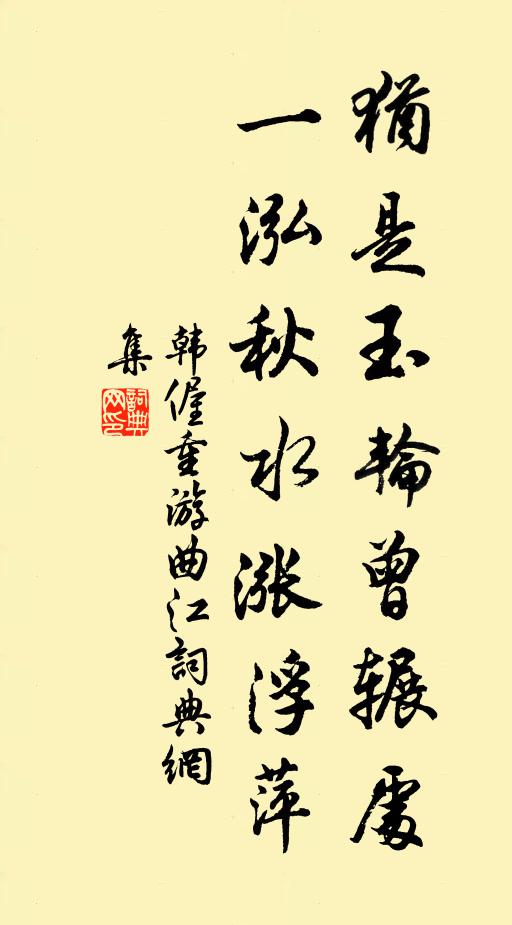 猶是玉輪曾辗處
一泓秋水漲浮萍
韩偓重游曲江詞典網
集
詞典
网印